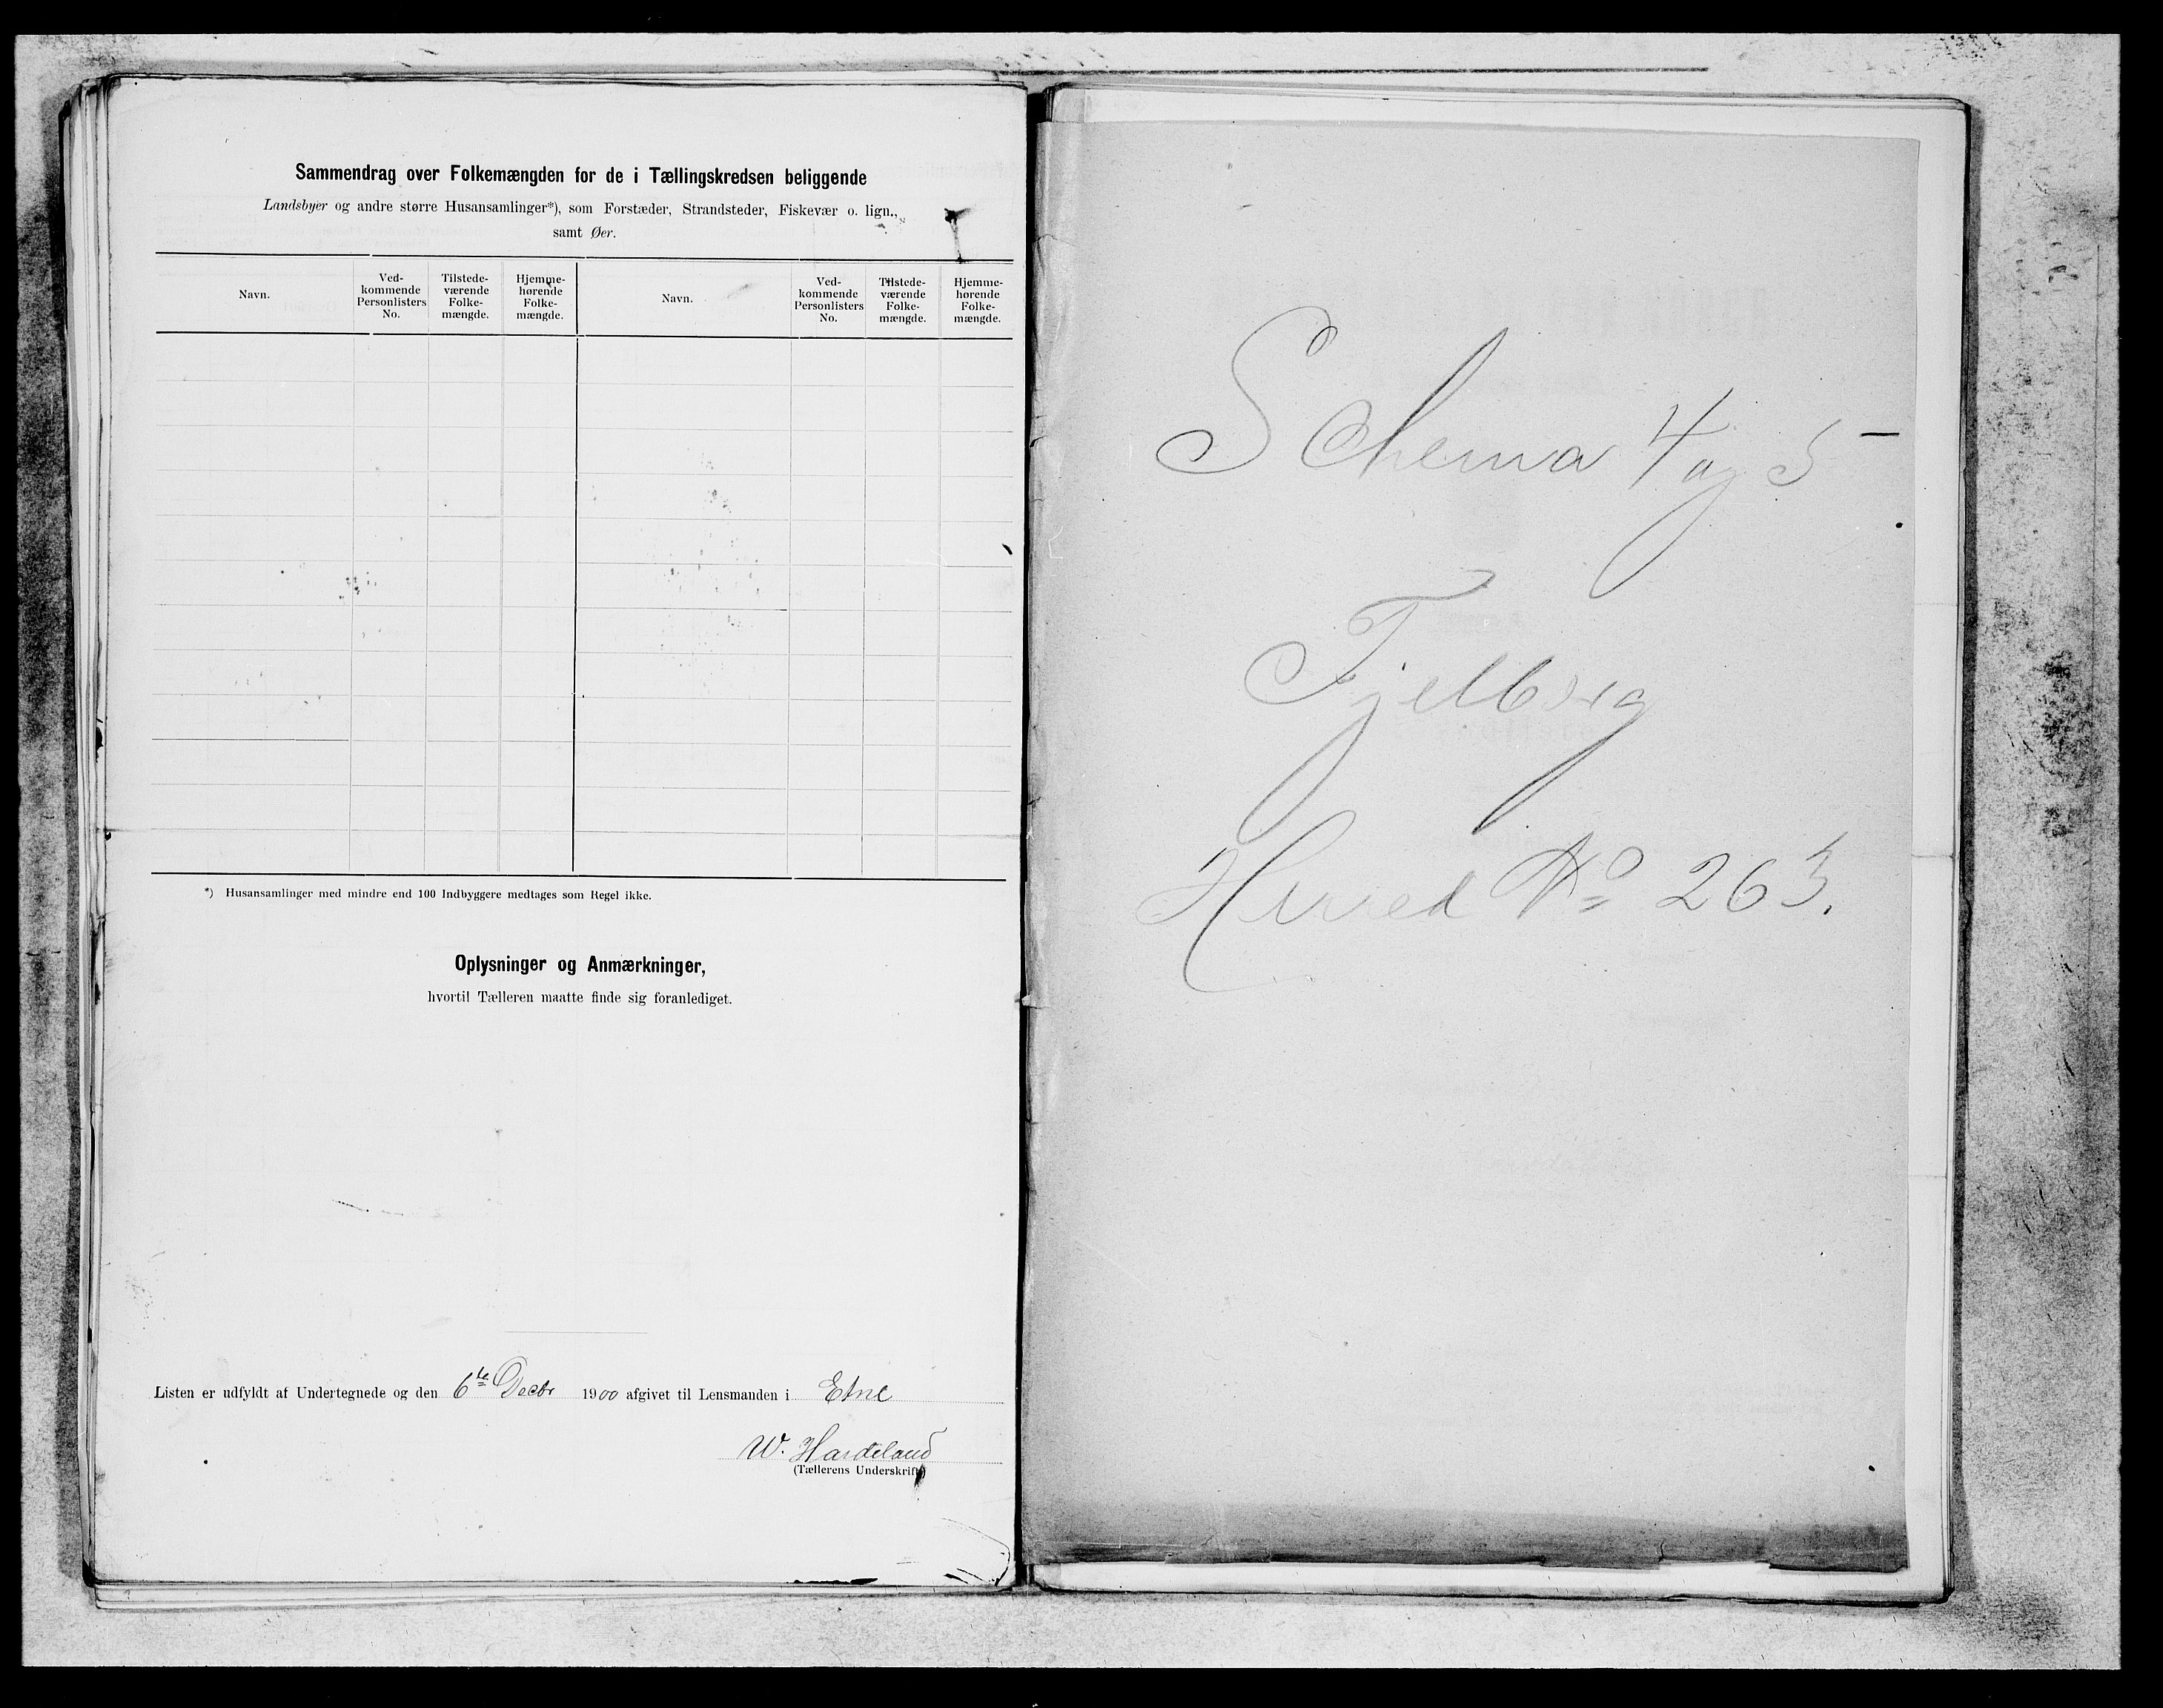 Sammendrag over Folkemængden for de i Tællingskredsen beliggende
Landsbyer og andre større Husansamlinger*), som Forstæder, Strandsteder, Fiskevær o. lign.,
samt Øer.
Navn.
Ved-
kommende
Personlisters
No.
Tilstede-
værende
Folke-
mængde.
Hjemme-
hørende
Folke-
mængde.
Navn.
Ved-
kommende
Personlisters
No.
Tilstede-
værende
Folke-
mængde.
Hjemme-
hørende
Folke-
mængde.
*) Husansamlinger med mindre end 100 Indbyggere medtages som Regel ikke.
Oplysninger og Anmærkninger,
hvortil Tælleren maatte finde sig foranlediget.
Listen er udfyldt af Undertegnede og den 6te Decbr 1900 afgivet til Lensmanden i Etne
W. Hardeland
(Tællerens Underskrift)
Schema 4 og 5
Fjelberg
Herred No 263.